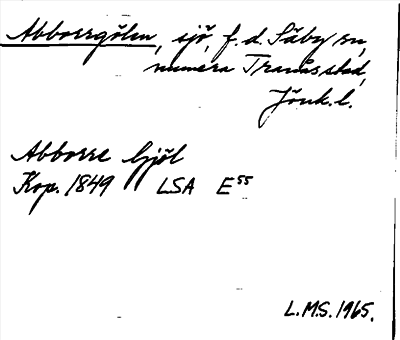 Abborrgölen, sjö, f.d. Säby sn,
numera Tranås stad,
Jönk. l.
Abborre Gjöl
Kop. 1849 LSA E55
L.M.S. 1965.